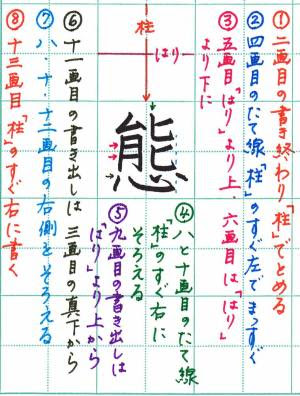 ①二画目の書き終わり「柱」でとめる
②四画目のたて線「柱」のすぐ左でまっすぐ
③五画目「はり」より上・六画目は「はり」
より下に
柱
はり
態
④八と十画目のたて線
「柱」のすぐ右に
そろえる
⑤九画目の書き出しは
「はり」より上から
⑥十一画目の書き出しは 三画目の真下から
⑦八・十・十二画目の右側をそろえる
⑧十三画目「柱」のすぐ右に書く